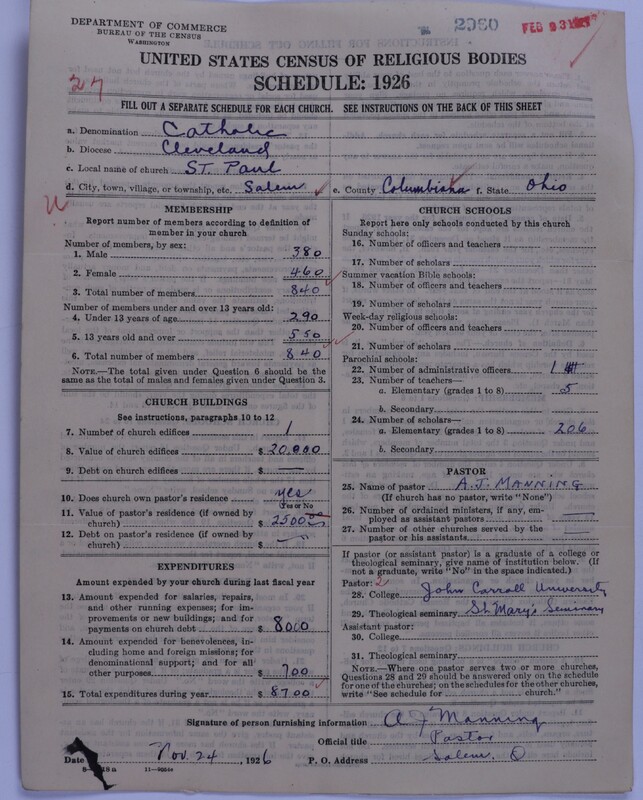 DEPARTMENT OF COMMERCE
BUREAU OF THE CENSUS
WASHINGTON
2060
FEB 23 1927
UNITED STATES CENSUS OF RELIGIOUS BODIES
SCHEDULE: 1926
27
FILL OUT A SEPARATE SCHEDULE FOR EACH CHURCH. SEE INSTRUCTIONS ON THE BACK OF THIS SHEET
a. Denomination Catholic
b. Diocese Cleveland
c. Local name of church ST. Paul
d. City, town, village, or township, etc. Salem e. County Columbiana f. State Ohio
MEMBERSHIP
Report number of members according to definition of
member in your church.
Number of members, by sex:
1. Male 380
2. Female 460
3. Total number of members 840
Number of members under and over 13 years old:
4. Under 13 years of age 290
5. 13 years old and over 550
6. Total number of members 840
NOTE.—The total given under Question 6 should be
same as the total of males and females given under Question 3.
CHURCH BUILDINGS
See instructions, paragraphs 10 to 12
7. Number of church edifices 1
8. Value of church edifices $ 20,000
9. Debt on church edifices $ —
10. Does church own pastor's residence yes
(Yes or No)
11. Value of pastor's residence (if owned by
church) $ 2500
12. Debt on pastor's residence (if owned by
church) $ —
EXPENDITURES
Amount expended by your church during last fiscal year
13. Amount expended for salaries, repairs,
and other running expenses; for im-
provements or new buildings; and for
payments on church debt $ 8000
14. Amount expended for benevolences, in-
cluding home and foreign missions; for
denominational support; and for all
other purposes $ 700
15. Total expenditures during year $ 8700
CHURCH SCHOOLS
Report here only schools conducted by this church
Sunday schools:
16. Number of officers and teachers
17. Number of scholars
Summer vacation Bible schools:
18. Number of officers and teachers
19. Number of scholars
Week-day religious schools:
20. Number of officers and teachers
21. Number of scholars
Parochial schools:
22. Number of administrative officers 1
23. Number of teachers—
a. Elementary (grades 1 to 8) 5
b. Secondary
24. Number of scholars—
a. Elementary (grades 1 to 8) 206
b. Secondary
PASTOR
25. Name of pastor A. J. MANNING
(If church has no pastor, write "None")
26. Number of ordained ministers, if any, em-
ployed as assistant pastors —
27. Number of other churches served by the
pastor or his assistants —
If pastor (or assistant pastor) is a graduate of a college or
theological seminary, give name of institution below. (If
not a graduate, write "No" in the space indicated.)
Pastor: 2
28. College John Carroll University
29. Theological seminary St. Mary's Seminary
Assistant pastor:
30. College
31. Theological seminary
NOTE.—Where one pastor serves two or more churches,
Questions 28 and 29 should be answered only on the schedule
for one of the churches; on the schedules for the other churches,
write "See schedule for church."
Signature of person furnishing information A J Manning
Official title Pastor
Date Nov. 24, 1926 P. O. Address Salem, O